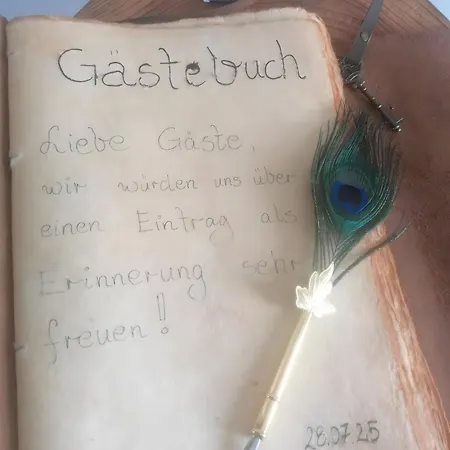 Gästebuch
Liebe Gäste,
wir würden uns über
einen Eintrag als
Erinnerung sehr
freuen!
28.07.25